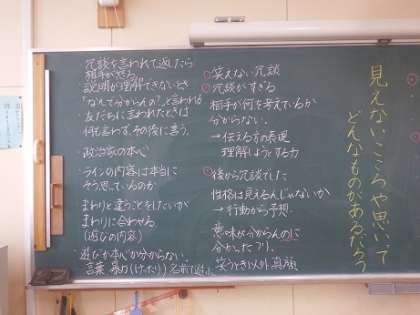 見えないこころや思いって
どんなものがあるだろう
笑えない冗談
冗談がすぎる
相手が何を考えているか
分からない。
→伝える方の表現
理解しようとする力
後から冗談でした
性格は見えるんじゃないか
→行動から予想
意味が分からんのに
分かったフリ。
笑うとき以外真顔
冗談を言われて返したら
相手が怒る
説明が理解できないとき
「なんで分からんの?」と言われる
・友だちに言われたときは
何も言わず、その後に言う。
・政治家の本心
ラインの内容は本当に
そう思っているのか
まわりと違うことをしたいが
まわりに合わせる
(遊びの内容)
・遊びか本心か分からない。
言葉 暴力(けったり)